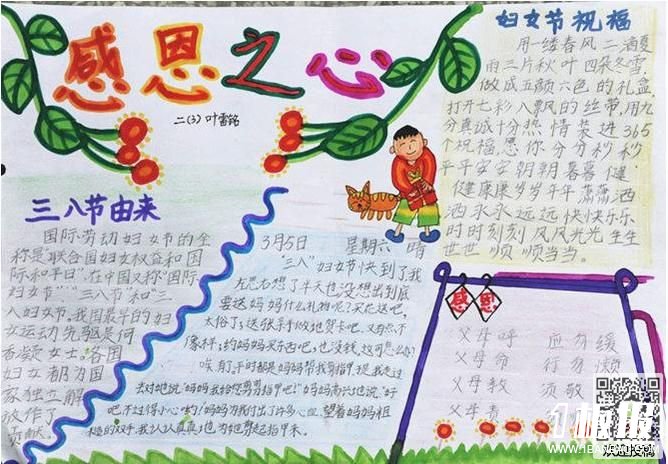 感恩之心
二(3) 叶雪铭
妇女节祝福
用一缕春风二滴夏
雨三片秋叶四朵冬雪
做成五颜六色的礼盒
打开七彩八飘的丝带,用九
分真诚十分热情装进365
个祝福,愿你分分秒秒
平平安安朝朝暮暮健
健康康岁岁年年潇潇洒
洒永永远远快快乐乐
时时刻刻风风光光生生
世世顺顺当当。
三八节由来
国际劳动妇女节的全
称是联合国妇女权益和国
际和平日"在中国又称"国际
妇女节""三八节"和"三
八妇女节,我国最早的妇
女运动先驱是何
香凝女士。各国
妇女都为国
家独立解
放作了
贡献。
3月5日 星期六 晴
"三八"妇女节快到了我
左思右想了半天也没想出到底
要送妈妈什么礼物呢?买花送吧,
太俗了;送张手
像样;约妈妈买东西吧,也没钱,这可怎么办?
唉,平时都是妈妈帮我剪指甲,我走过
去对她说:"妈妈我给您剪剪指甲吧!"妈妈高兴地说:"好
吧,不过得小心
的双手,我认认真真地为她剪起指甲来。
感恩
父母呼 应勿缓
父母命 行勿懒
父母教 须敬
父母责
欢迎投稿